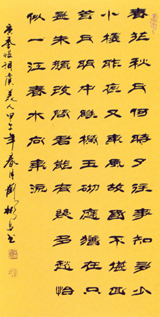 春花秋月何時了往事知多少
小樓昨夜又東風故國不堪回
首月明中雕欄玉砌應猶在只
是朱顏改問君能有幾多愁恰
似一江春水向東流
李煜詞虞美人甲午年春月書